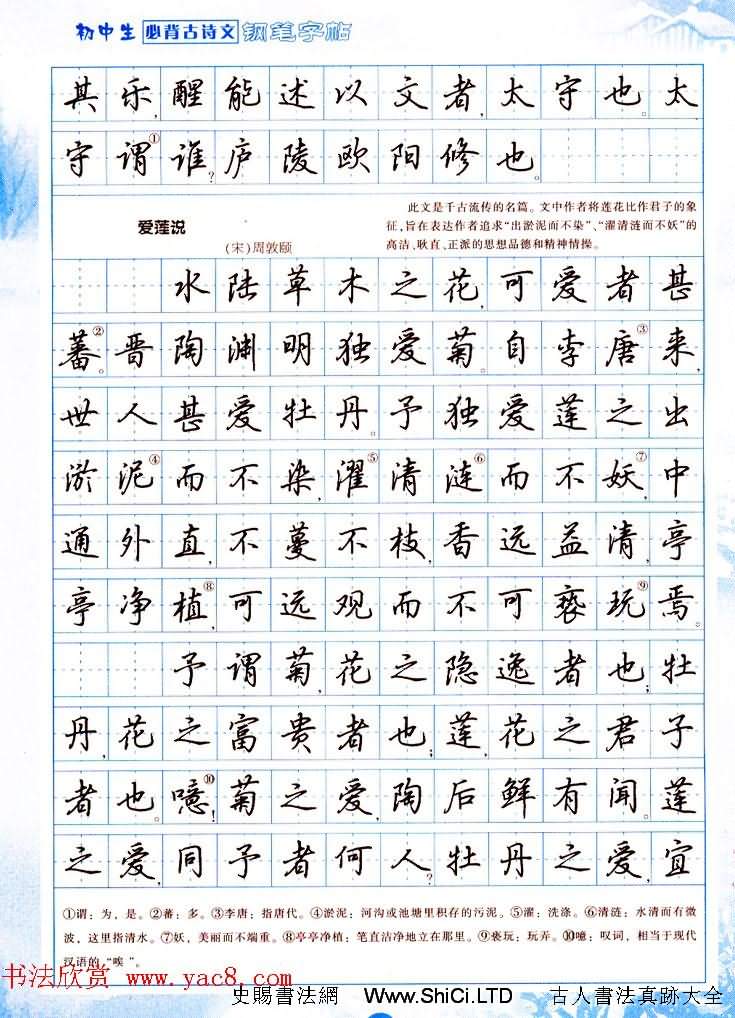 初中生 必背古诗文 钢笔字帖
其乐,醒能述以文者,太守也。太
守谓①谁?庐陵欧阳修也。
爱莲说
(宋)周敦颐
此文是千古流传的名篇。文中作者将莲花比作君子的象
征,旨在表达作者追求“出淤泥而不染”、“濯清涟而不妖”的
高洁、耿直、正派的思想品德和精神情操。
水陆草木之花,可爱者甚
蕃②。晋陶渊明独爱菊。自李唐③来,
世人甚爱牡丹。予独爱莲之出
淤泥④而不染,濯⑤清涟⑥而不妖⑦,中
通外直,不蔓不枝,香远益清,亭
亭净植⑧,可远观而不可亵玩⑨焉。
予谓菊,花之隐逸者也;牡
丹,花之富贵者也;莲,花之君子
者也。噫⑩!菊之爱,陶后鲜有闻。莲
之爱,同予者何人?牡丹之爱,宜
①谓:为,是。②蕃:多。③李唐:指唐代。④淤泥:河沟或池塘里积存的污泥。⑤濯:洗涤。⑥清涟:水清而有微
波,这里指清水。⑦妖,美丽而不端重。⑧亭亭净植:笔直洁净地立在那里。⑨亵玩:玩弄。⑩噫:叹词,相当于现代
汉语的“唉”。
书法欣赏 www.yac8.com
史賜書法網 Www.ShiCi.LTD 古人書法真跡大全